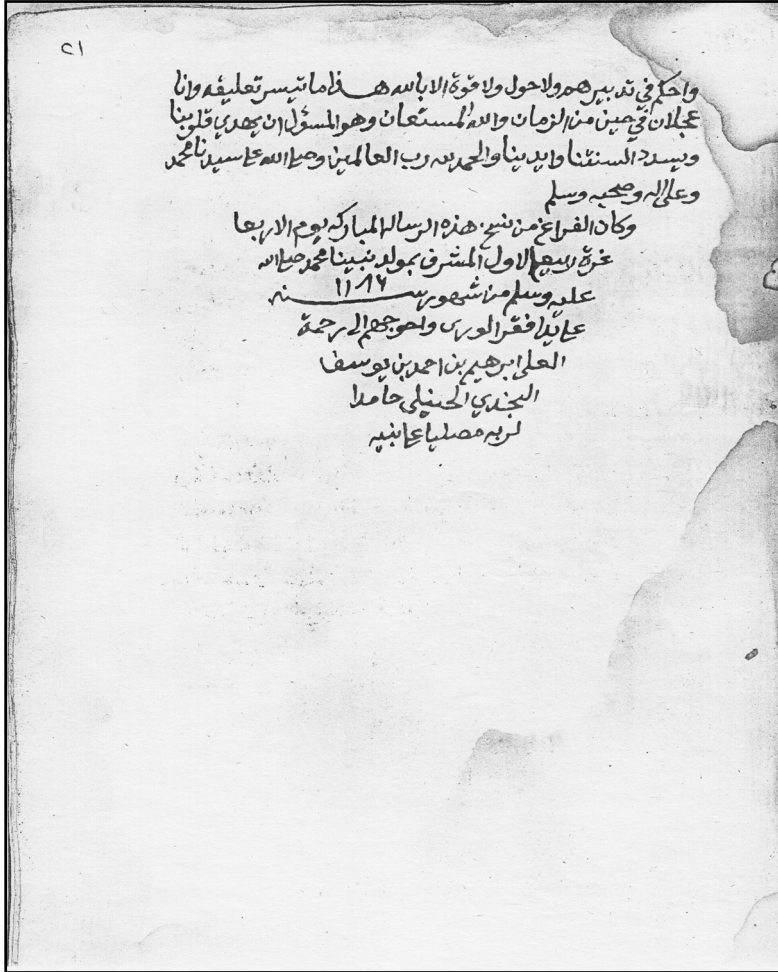 ٢١
واحكم في تدبيرهم ولا حول ولا قوة الا بالله هذا ما تيسر تعليقه وانا
عجلان في حين من الزمان والله المستعان وهو المسؤل ان يهدي قلوبنا
ويسدد السنتنا وايدينا والحمد لله رب العالمين وصلى الله على سيدنا محمد
وعلى اله وصحبه وسلم
وكان الفراغ من نسخ هذه الرساله المباركه يوم الاربعا
غرة ربيع الاول المشرف بمولد نبينا محمد صلى الله
عليه وسلم من شهور سنه ١١٨٦
على يد افقر الورى واحوجهم الى رحمة
العلي ابرهيم بن احمد بن يوسف
النجدي الحنبلي حامدا
لربه مصليا على نبيه